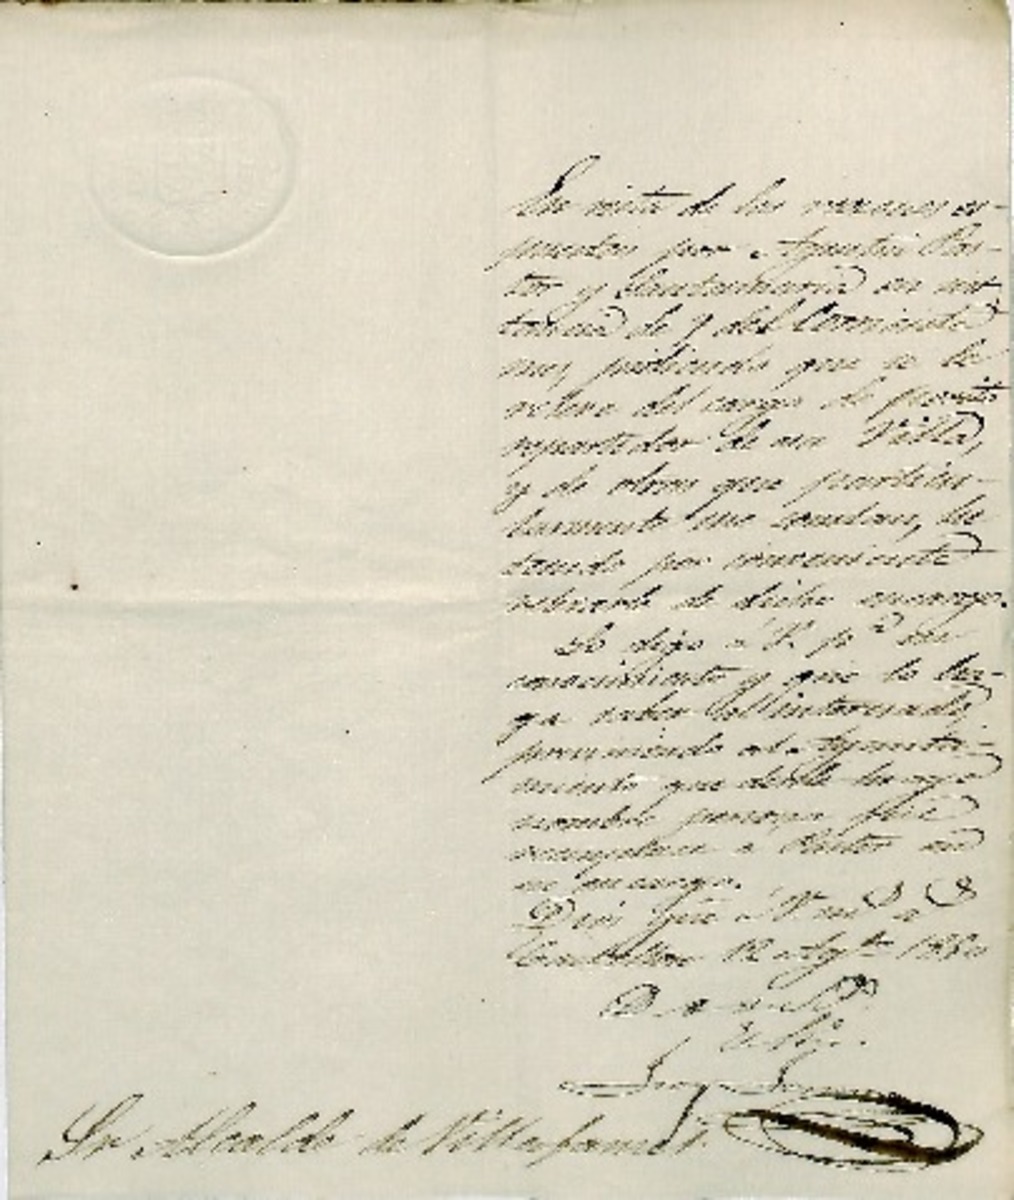 En vista de las razones es-
puestas por Agustin Pas-
tor y Santamaria en ins-
tancia de 9 del Corriente
mes, pidiendo que se le
releve del cargo de perito
repartidor de esa Villa,
y de otras que particu-
larmente me constan, he
tenido por conveniente
relevarle de dicho encargo.
Lo digo a V. p.ª su
conocimiento y que lo ha-
ga saber al interesado,
previniendo al Ayunta-
miento que desde luego
nombre persona que
reemplace a Pastor en
su encargo.
Dios gue a V. m.s a.s
Castellon 12 Ag.to 18
Sr. Alcalde de Villafamés.